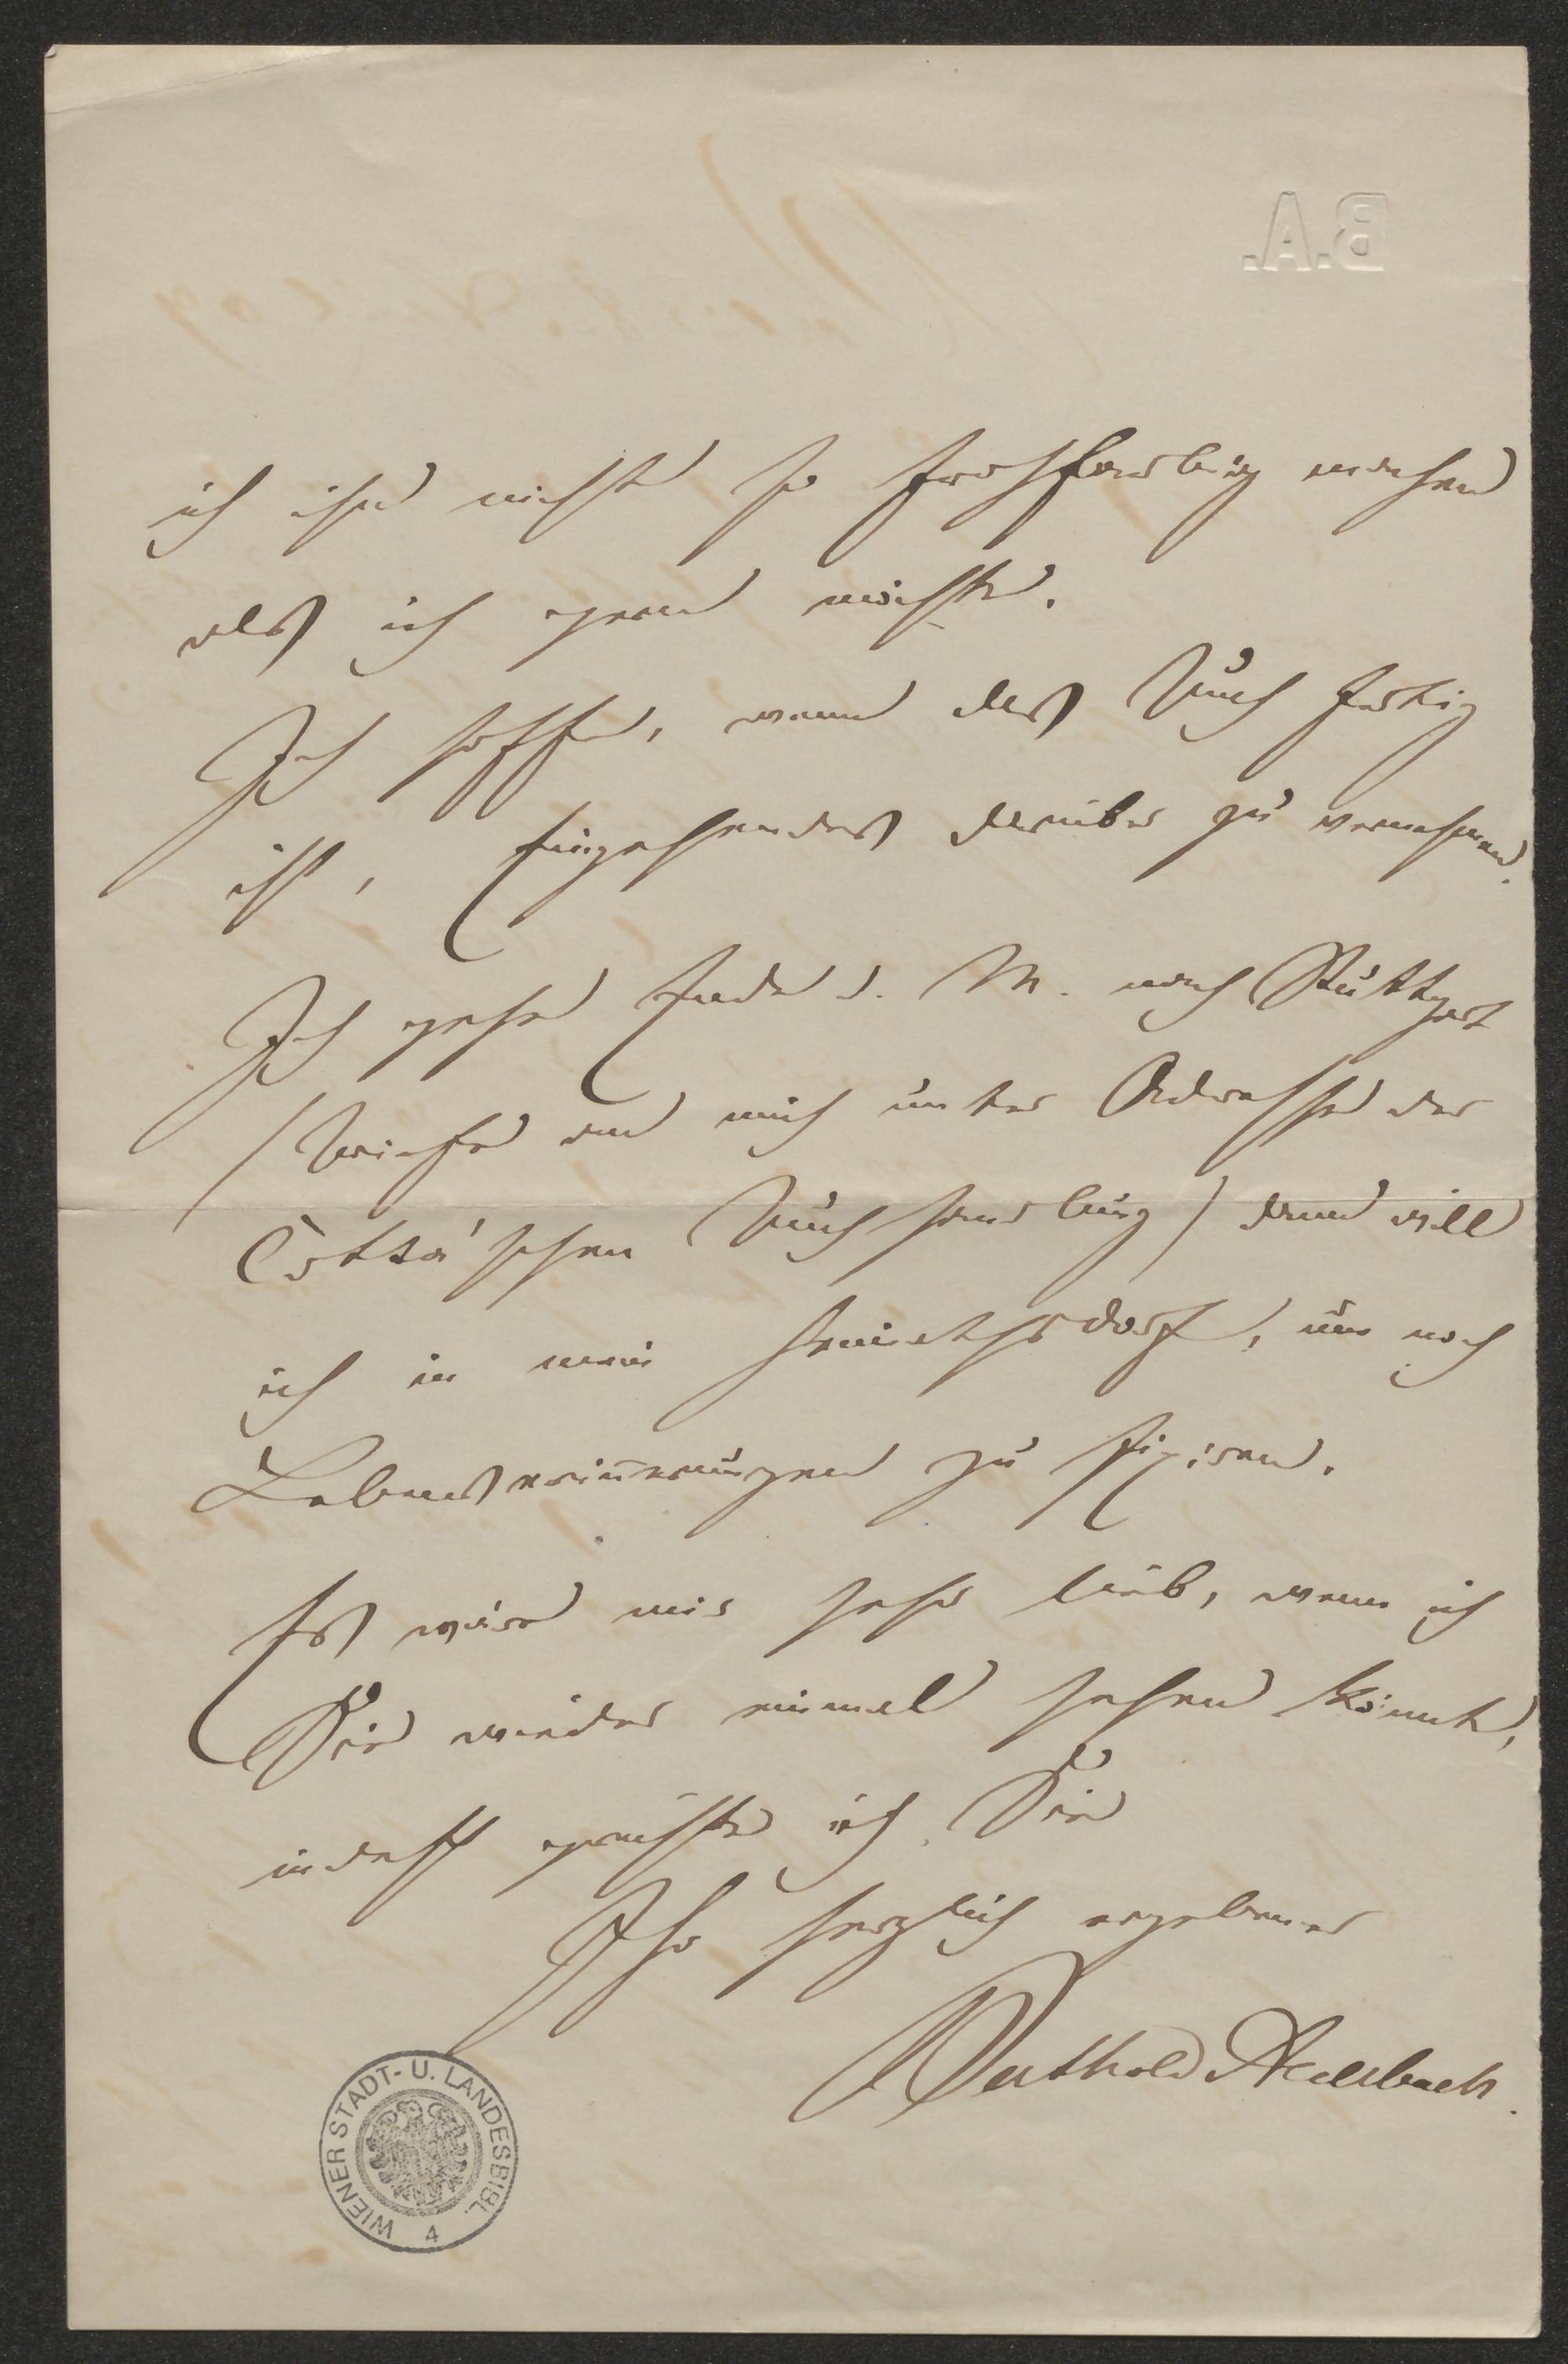 B.A.
ich ihn nicht so frohfarbig machen
als ich gern möchte.
Ich hoffe, wenn das Buch fertig
ist, Eingehendes darüber zu vernehmen.
Ich gehe Ende d. M. nach Stuttgart
(Briefe an mich unter Adresse der
Cotta'schen Buchhandlung) dann will
ich in mein Heimathsdorf, um noch
Lebenserinnerungen zu fixiren.
Es wäre mir sehr lieb, wenn ich
Sie wieder einmal sehen könnte,
indeß grüßt ich Sie
Ihr herzlich ergebener
Berthold Auerbach.
WIENER STADT- U. LANDESBIBL.
4